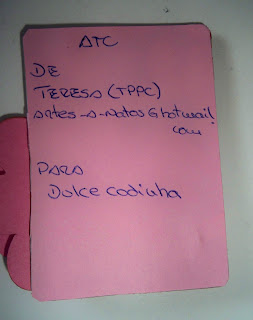 ATC
DE
TERESA (TPPC)
artes-a-molos@hotmail.
com
PARA
Dulce codinha